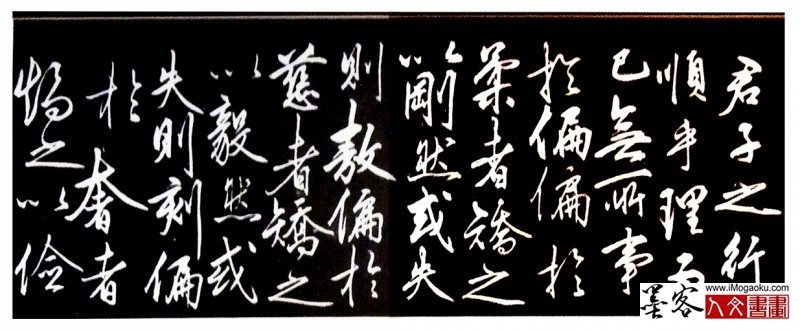 君子之行
順乎理而
已無所事
於偏偏於
柔者矯之
以剛然或失
則敖偏於
慈者矯之
以毅然或
失則刻偏
於奢者
矯之以儉
墨客
www.iMogaoku.com
人文書畫